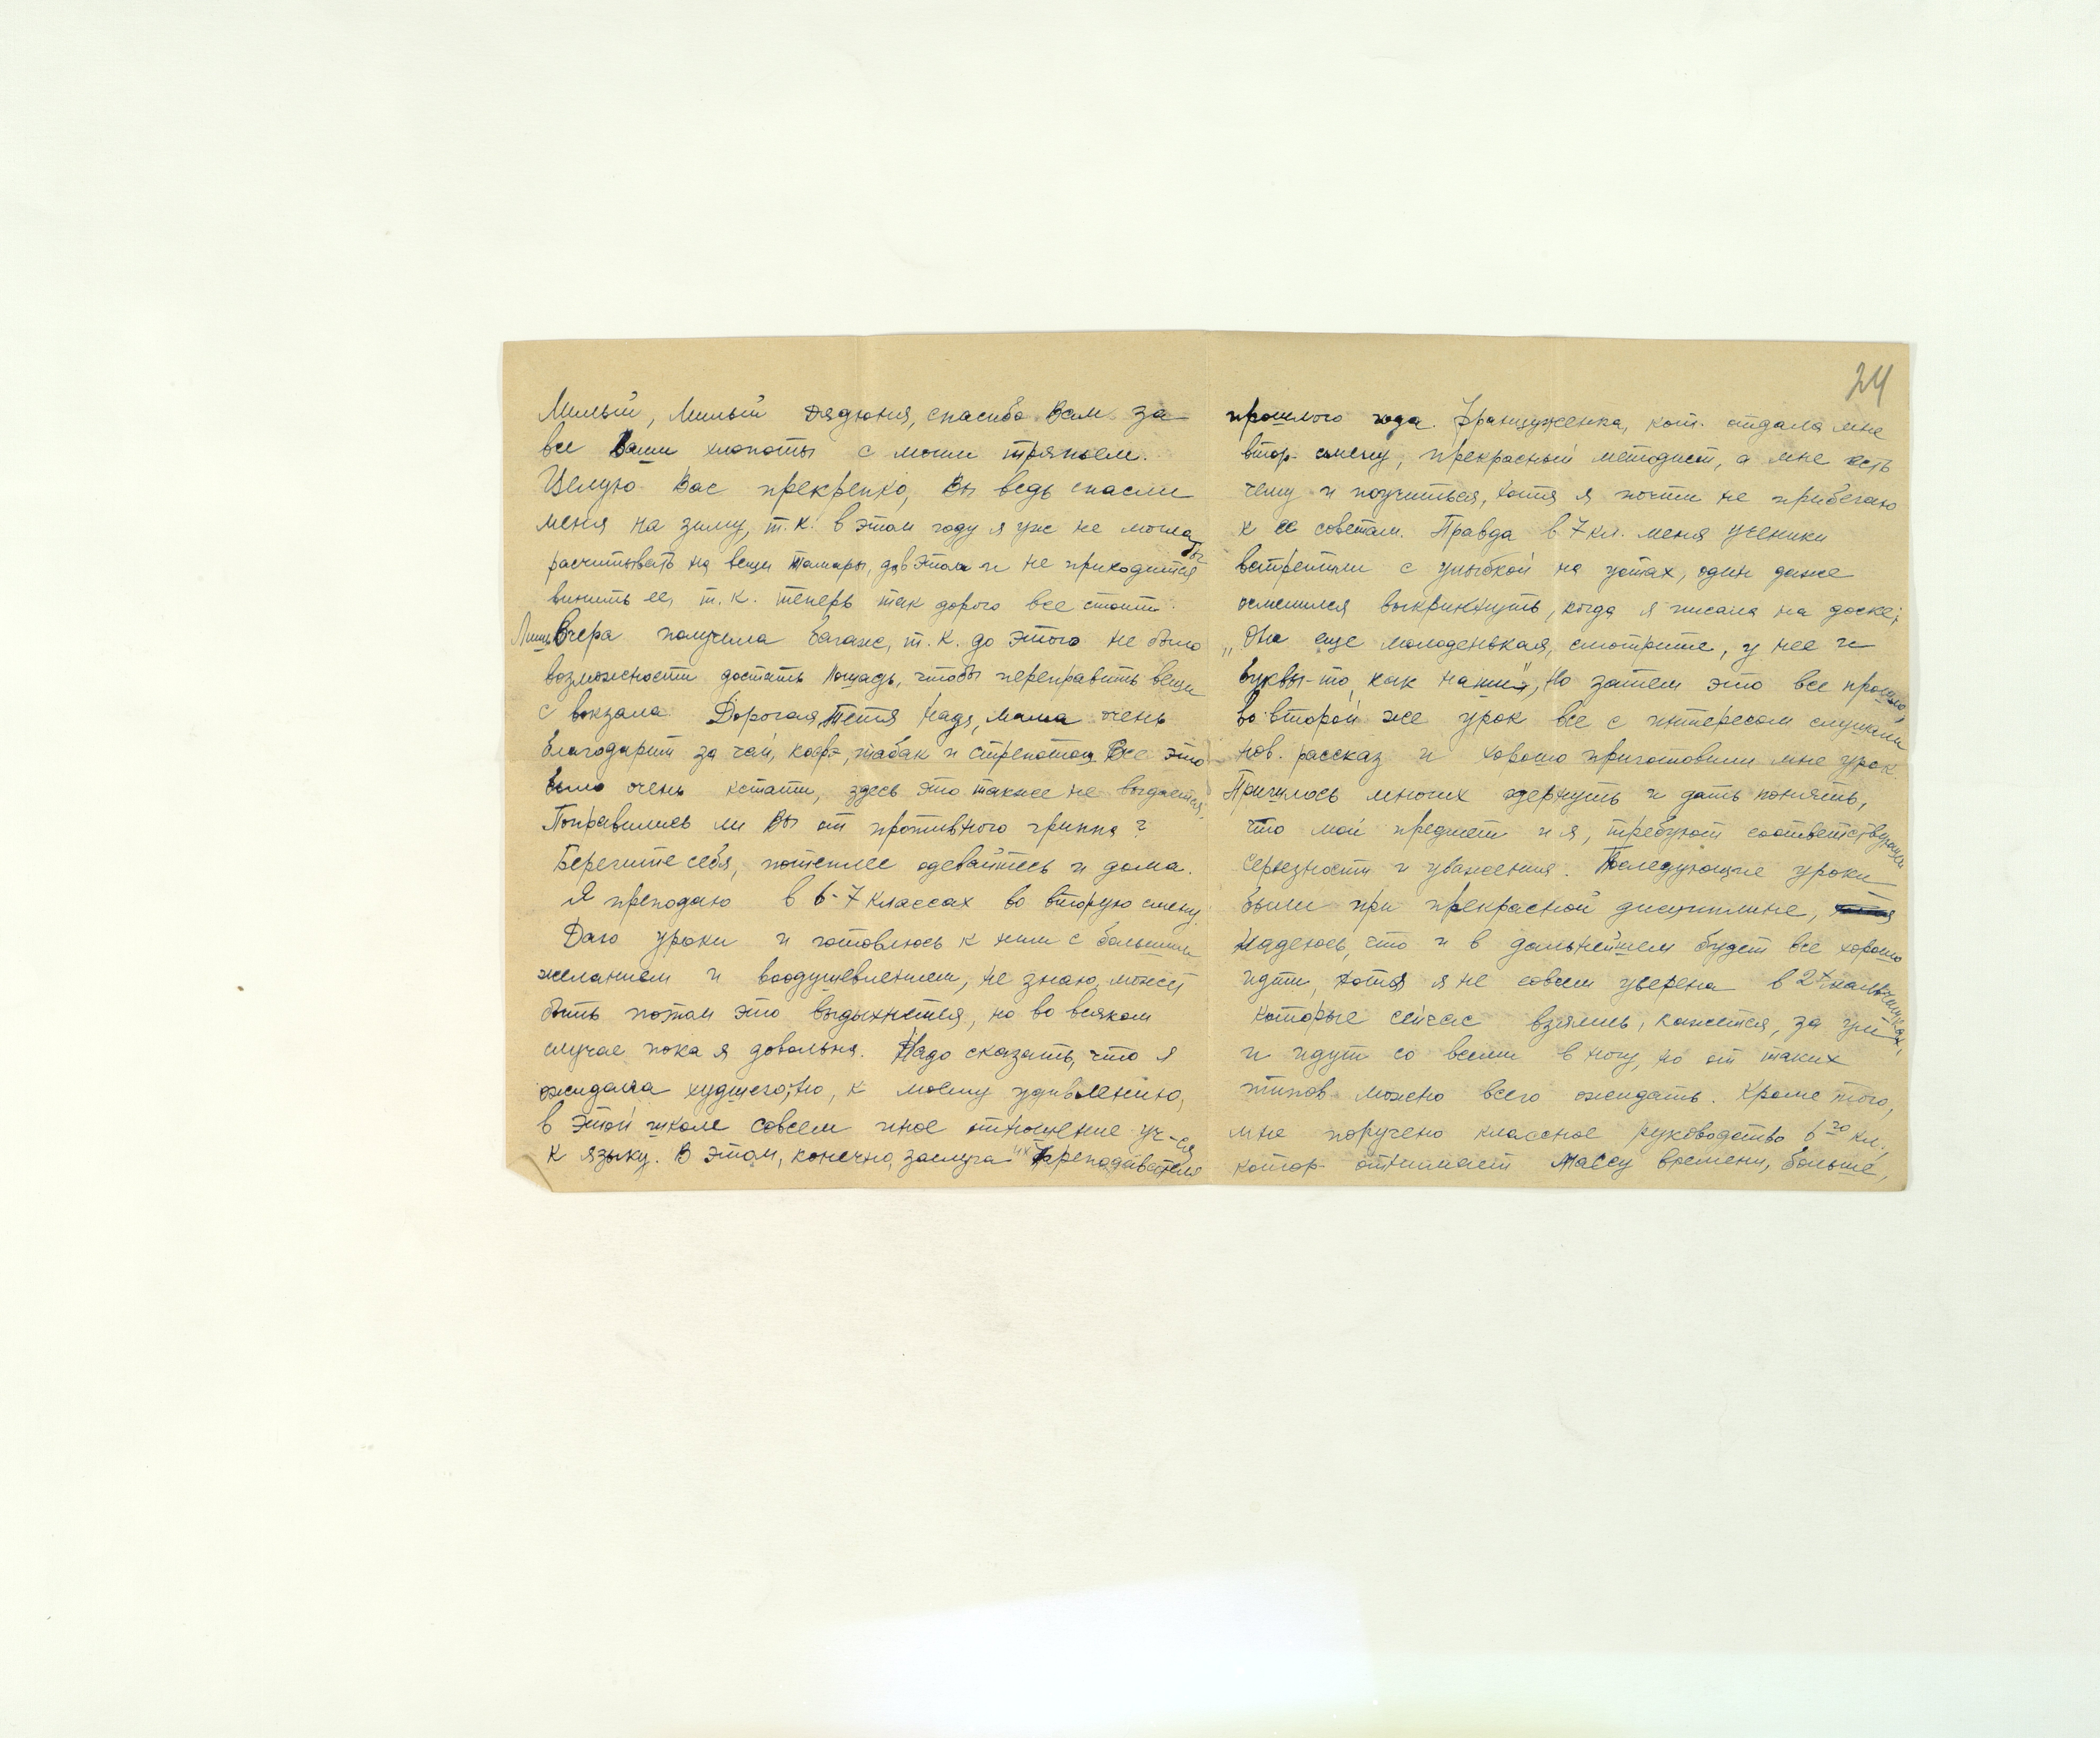 Милый, милый дядюня, спасибо Вам за
все Ваши хлопоты с моим тряпьем.
Целую Вас прекрепко, Вы ведь спасли
меня на зиму, т.к. в этом году я уж не могла бы
расчитывать на вещи Тамары, да в этом и не приходится
винить ее, т.к. теперь так дорого все стоит.
Лишь вчера получила багаж, т.к. до этого не было
возможности достать лошадь, чтобы переправить вещи
с вокзала. Дорогая тетя Надя, мама очень
благодарит за чай, кофэ, табак и стрептоц. Все это
было очень кстати, здесь это также не выдается.
Поправились ли Вы от противного гриппа?
Берегите себя, потеплее одевайтесь и дома.
Я преподаю в 6-7 классах во вторую смену.
Даю уроки и готовлюсь к ним с большим
желанием и воодушевлением, не знаю, может
быть потом это выдыхнется, но во всяком
случае пока я довольна. Надо сказать, что я
ожидала худшего, но, к моему удивлению,
в этой школе совсем иное отношение уч-ся
к языку. В этом, конечно, заслуга их преподавателя
24
прошлого года. Француженка, кот. отдала мне
втор. смену, прекрасный методист, а мне есть
чему и поучиться, хотя я почти не прибегаю
к ее советам. Правда в 7 кл. меня ученики
встретили с улыбкой на устах, один даже
осмелился выкрикнуть, когда я писала на доске:
„Она еще молоденькая, смотрите, у нее и
буквы-то, как наши", но затем это все прошло,
во второй же урок все с интересом слушали
нов. рассказ и хорошо приготовили мне урок.
Пришлось многих одернуть и дать понять,
что мой предмет и я, требуют соответствующей
серьезности и уважения. Последующие уроки
были при прекрасной дисциплине,
надеюсь, что и в дальнейшем будет все хорошо
идти, хотя я не совсем уверена в 2х мальчишках,
которые сейчас взялись, кажется, за ум
и идут со всеми в ногу, но от таких
типов можно всего ожидать. Кроме того,
мне поручено классное руководство 6го кл.,
котор. отнимает массу времени, больше,